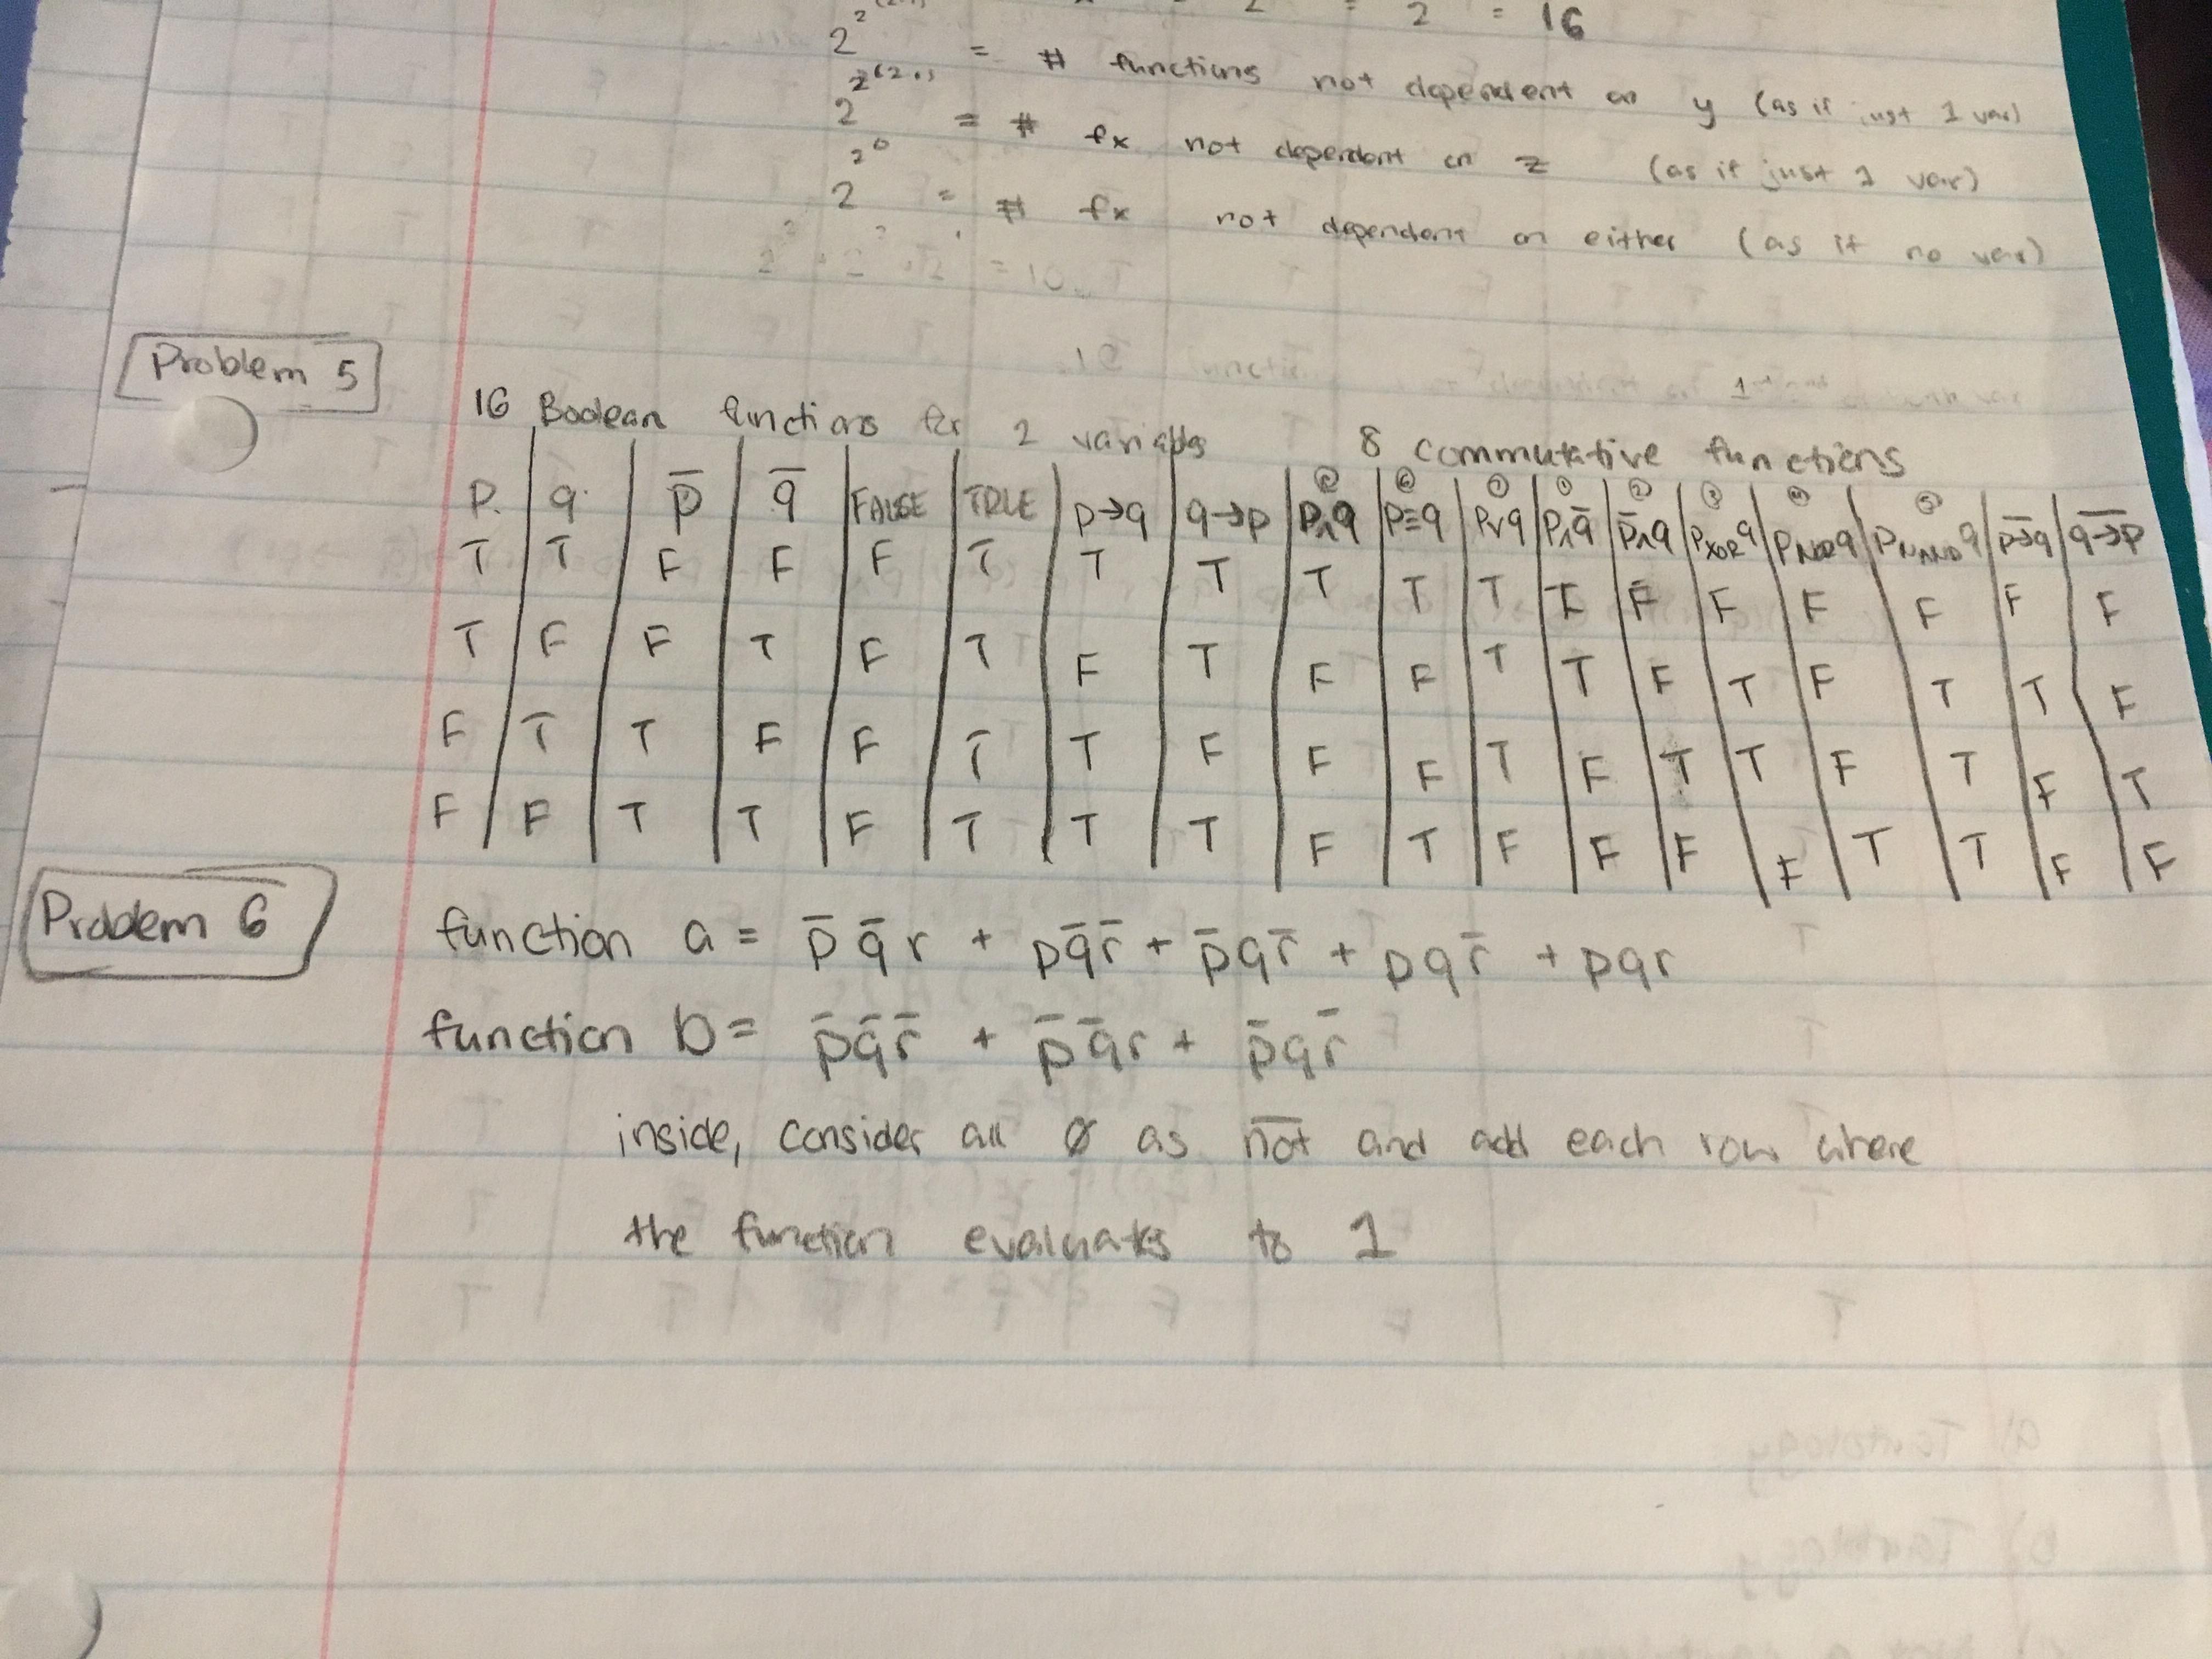 2 = 2 = 16
2^2 = # functions not dependent on y (as if just 1 var)
2^2^(2-1) = # fx not dependent on z (as if just 1 var)
2^2^0 = # fx not dependent on either (as if no var)
= 10
Problem 5
16 Boolean functions for 2 variables 8 commutative functions
p q p̅ q̅ FALSE TRUE p→q q→p p∧q p≡q p∨q p∧q̅ p̅∧q p XOR q p NOR q p NAND q p̅→̅q̅ q̅→̅p̅
T T F F F T T T T T T F F F F F F F
T F F T F T F T F F T T F T F T T F
F T T F F T T F F F T F T T F T F T
F F T T F T T T F T F F F F T T F F
Problem 6
function a = p̅ q̅ r + p q̅ r̅ + p̅ q r̅ + p q r̅ + p q r
function b = p̅ q̅ r̅ + p̅ q̅ r + p̅ q r̅
inside, consider all 0 as n̅o̅t̅ and add each row where
the function evaluates to 1